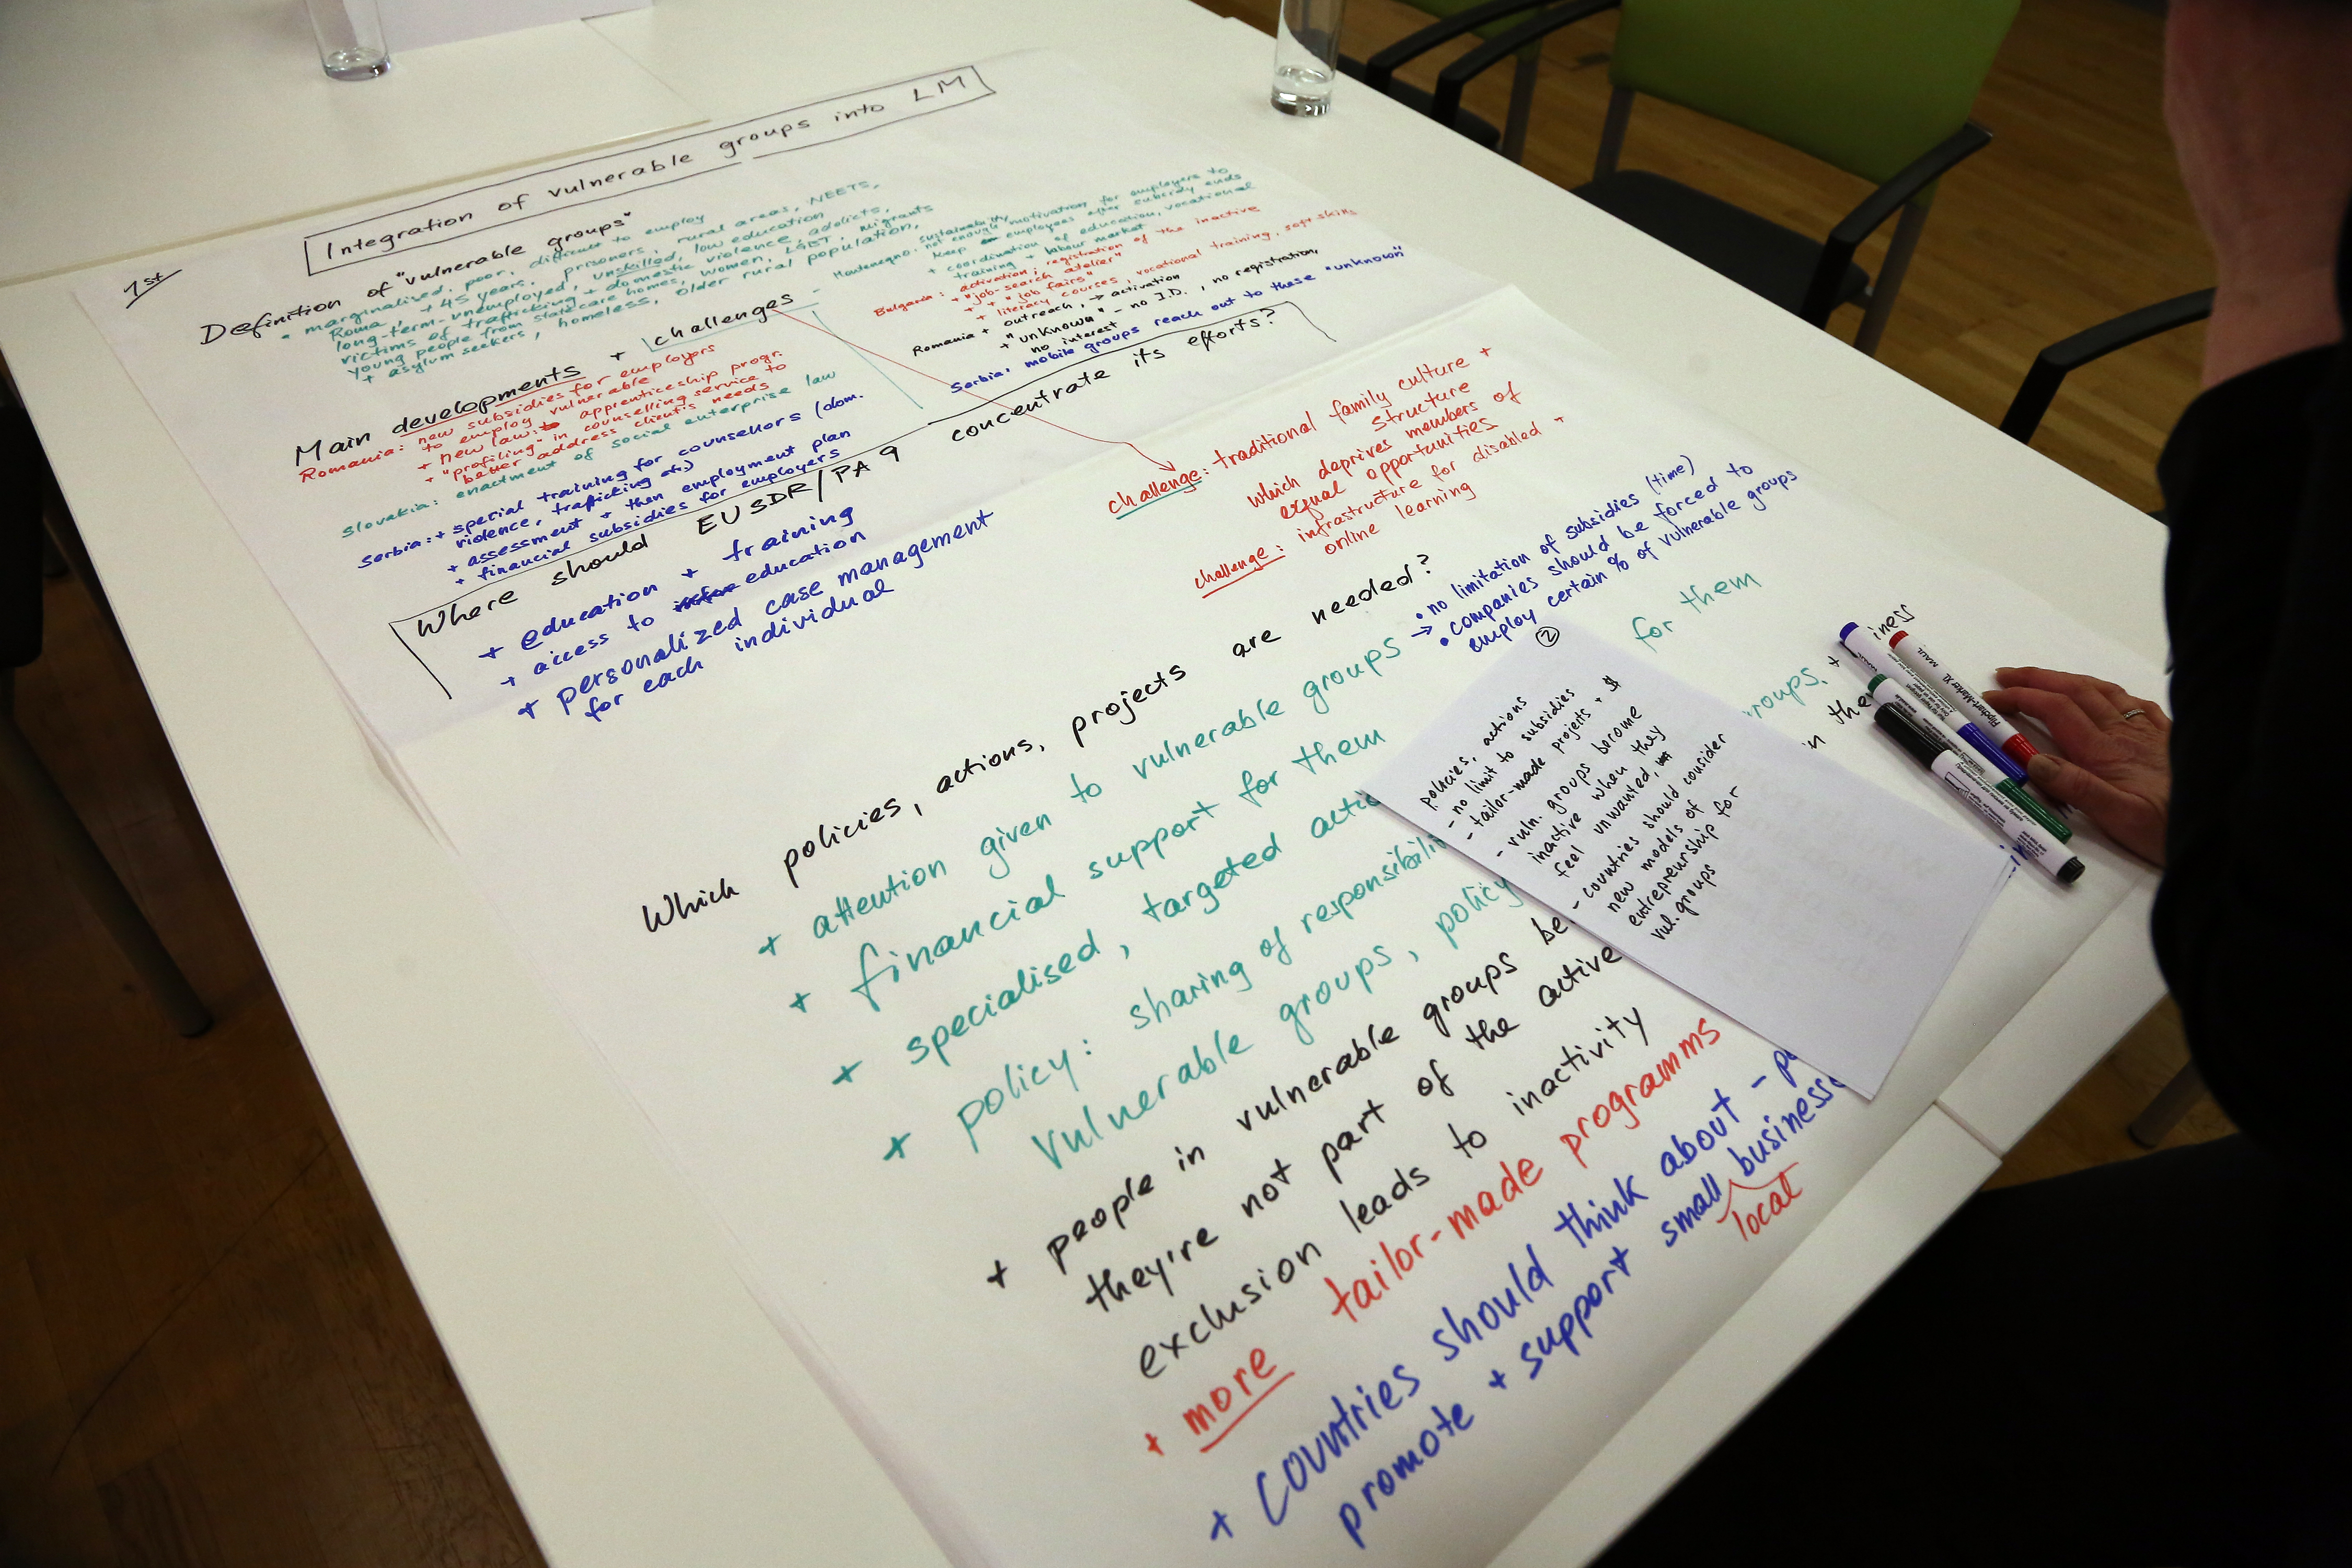 1st
Integration of vulnerable groups into LM
Definition of "vulnerable groups"
marginalised, poor, difficult to employ
Roma, + 45 years, prisoners, rural areas, NEETS,
long-term-unemployed, unskilled, low education
victims of trafficking + domestic violence, addicts,
young people from state care homes, women, LGBT, migrants
+ asylum seekers, homeless, older rural population,
Main developments + challenges
Romania: new subsidies for employers
to employ vulnerable
+ new law: apprenticeship progr.
+ "profiling" in counselling service to
better address client's needs
Slovakia: enactment of social enterprise law
Serbia: + special training for counsellors (dom.
violence, trafficking etc.)
+ assessment + then employment plan
+ financial subsidies for employers
Montenegro: sustainability,
not enough motivation for employers to
keep employees after subsidy ends
+ coordination of education, vocational
training + labour market
Bulgaria: activation; registration of the inactive
+ "job-search atelier"
+ "job fairs"
+ literacy courses, vocational training, soft skills
Romania + outreach, → activation
+ "unknown" - no I.D., no registration,
no interest
Serbia: mobile groups reach out to these "unknown"
Where should EUSDR/PA 9 concentrate its efforts?
+ education + training
+ access to education
+ personalized case management
for each individual
challenge: traditional family culture +
structure
which deprives members of
equal opportunities
challenge: infrastructure for disabled +
online learning
Which policies, actions, projects are needed?
+ attention given to vulnerable groups →
• no limitation of subsidies (time)
• companies should be forced to
employ certain % of vulnerable groups
+ financial support for them
for them
+ specialised, targeted
+ policy: sharing of
vulnerable groups, policy
+ people in vulnerable groups
they're not part of the active
exclusion leads to inactivity
+ more tailor-made programms
+ Countries should think about -
promote + support small
local
2
policies, actions
- no limit to subsidies
- tailor-made projects + $
- vuln. groups become
inactive when they
feel unwanted,
- countries should consider
new models of
entrepreurship for
vul. groups
MAUL
Flipchart-Marker XL